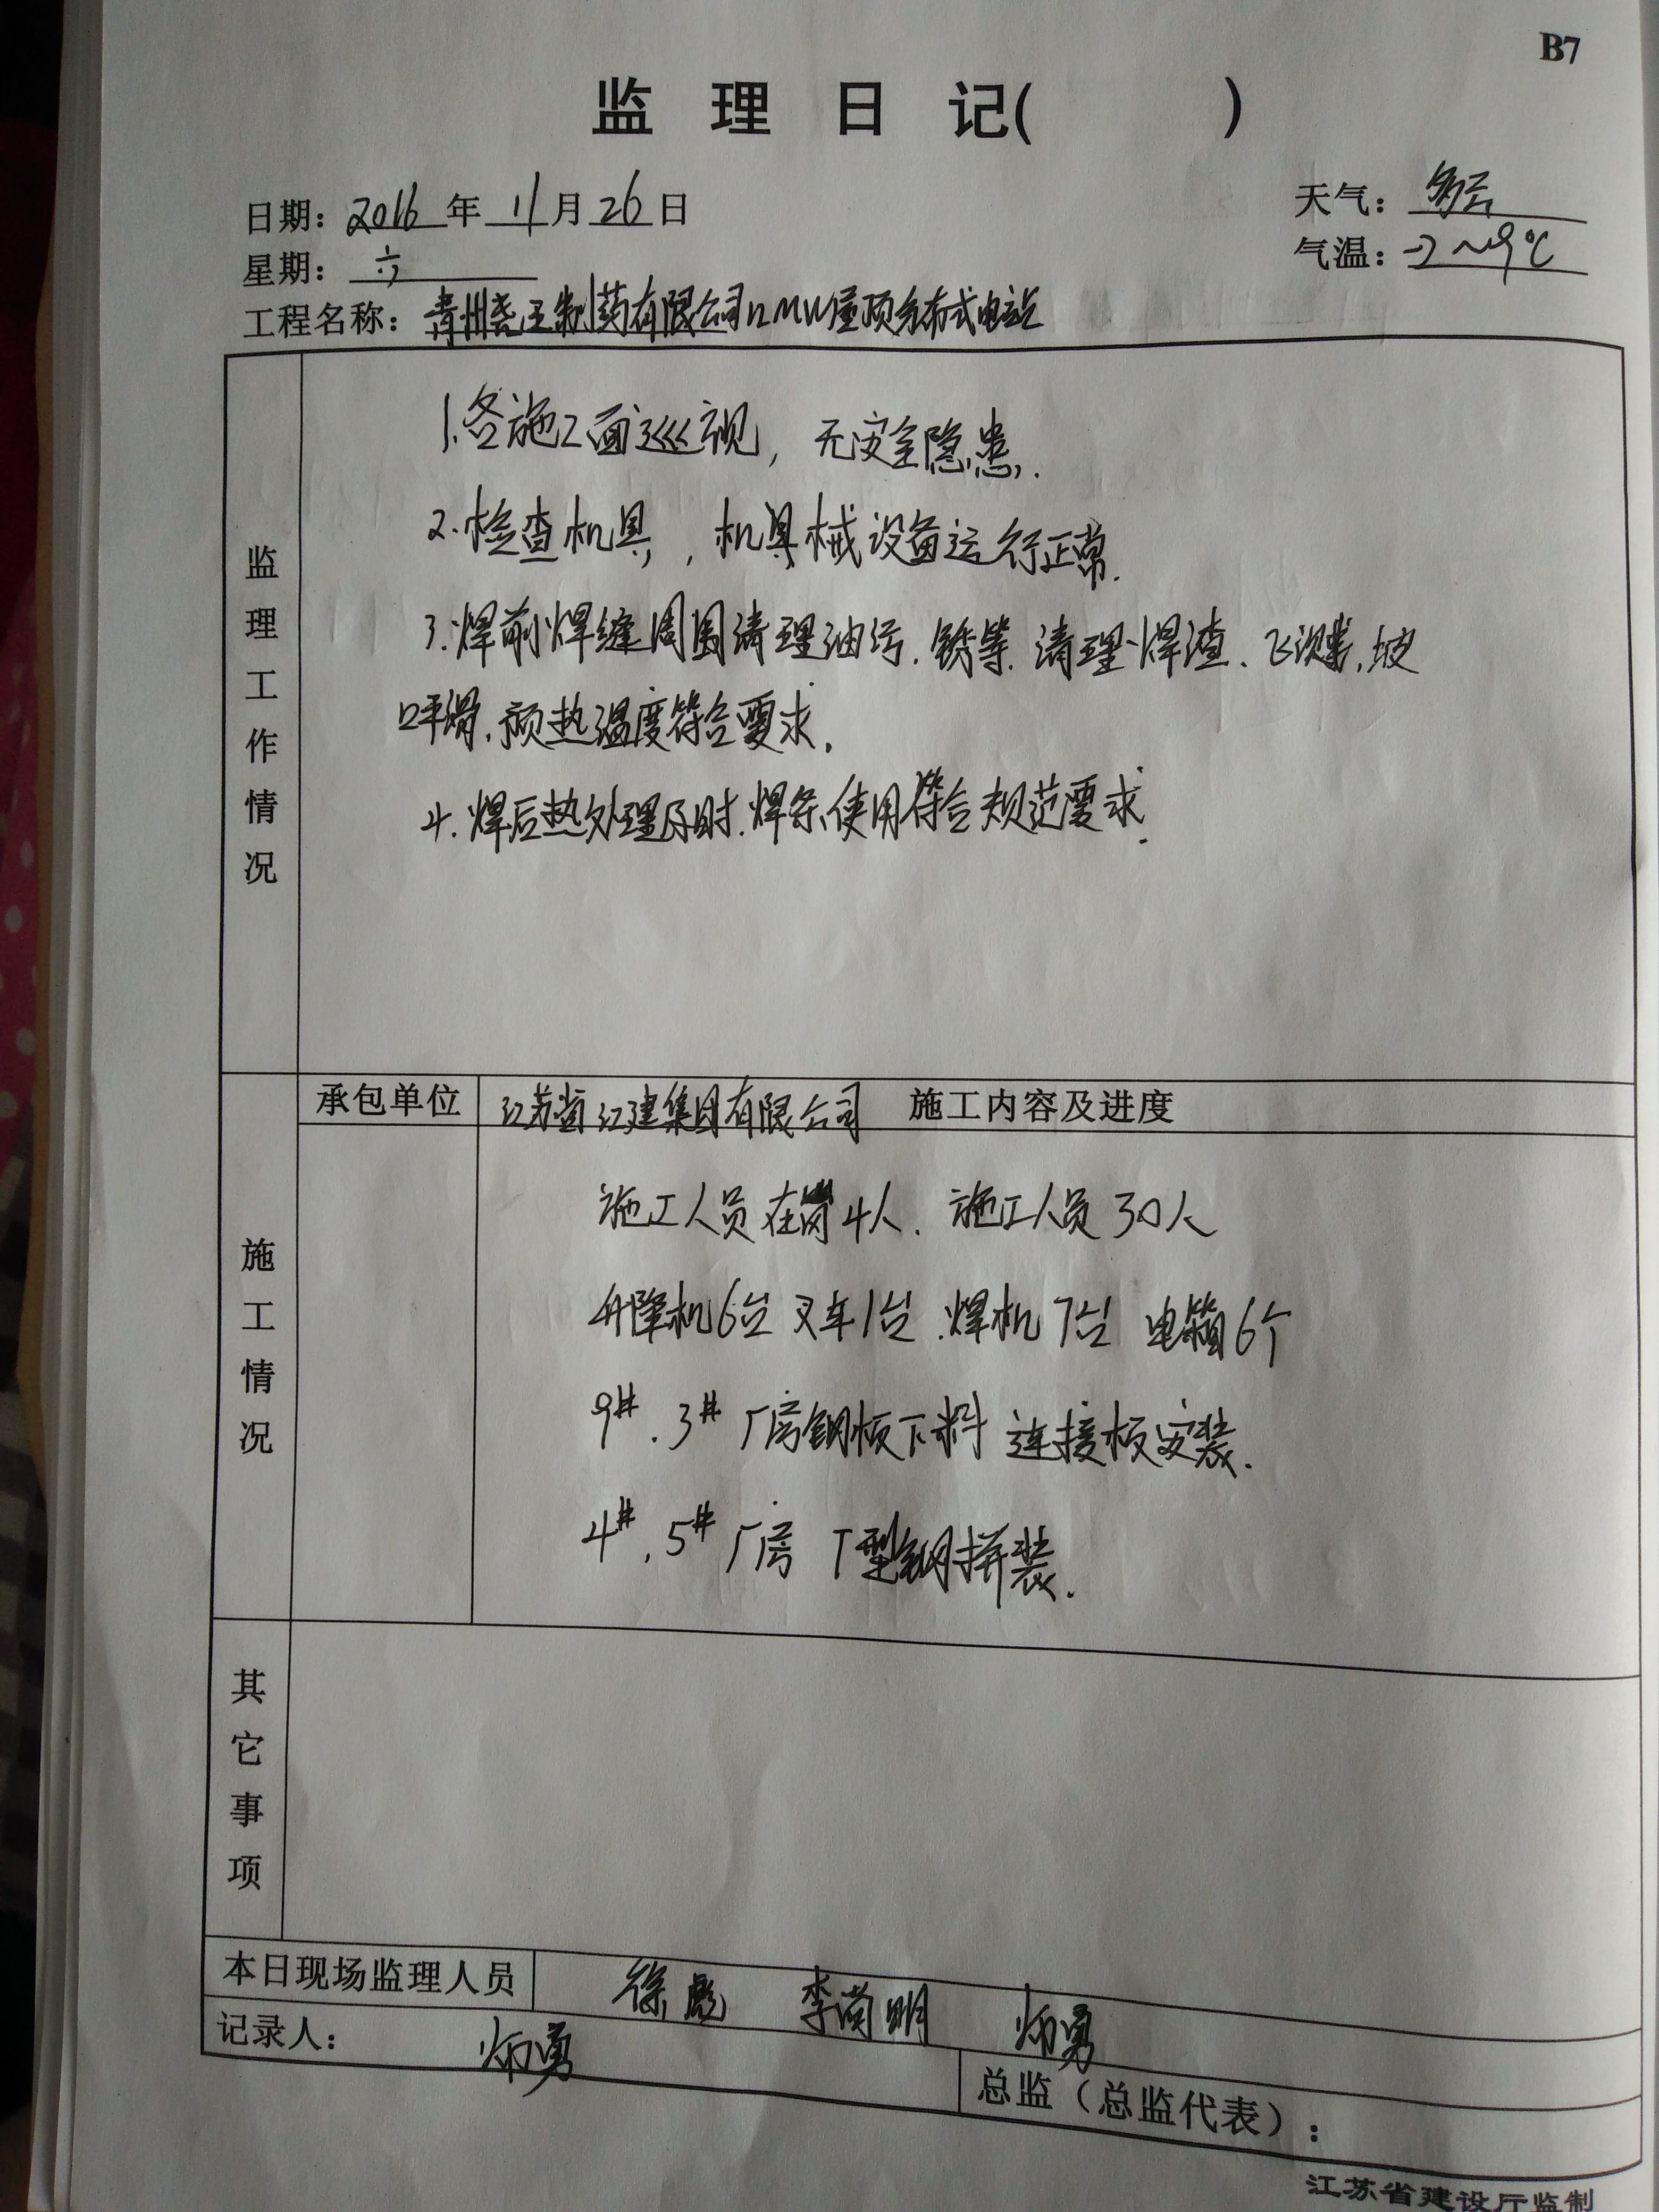 B7
监理日记( )
日期：2016年11月26日
天气：多云
星期：六
气温：-2~9℃
工程名称：青州尧王制药有限公司12MW屋顶分布式电站
监理工作情况
1.各施工面巡视，无安全隐患.
2.检查机具，机具械设备运行正常.
3.焊前焊缝周围清理油污.锈等.清理焊渣、飞溅，坡
口平滑.预热温度符合要求.
4.焊后热处理及时.焊条使用符合规范要求.
施工情况
承包单位 江苏省江建集团有限公司 施工内容及进度
施工人员在岗4人.施工人员30人
升降机6台 叉车1台.焊机7台 电箱6个
9#.3#厂房钢板下料 连接板安装.
4#.5#厂房 T型钢拼装.
其它事项
本日现场监理人员 徐彪 李尚明 炳勇
记录人：炳勇
总监（总监代表）：
江苏省建设厅监制